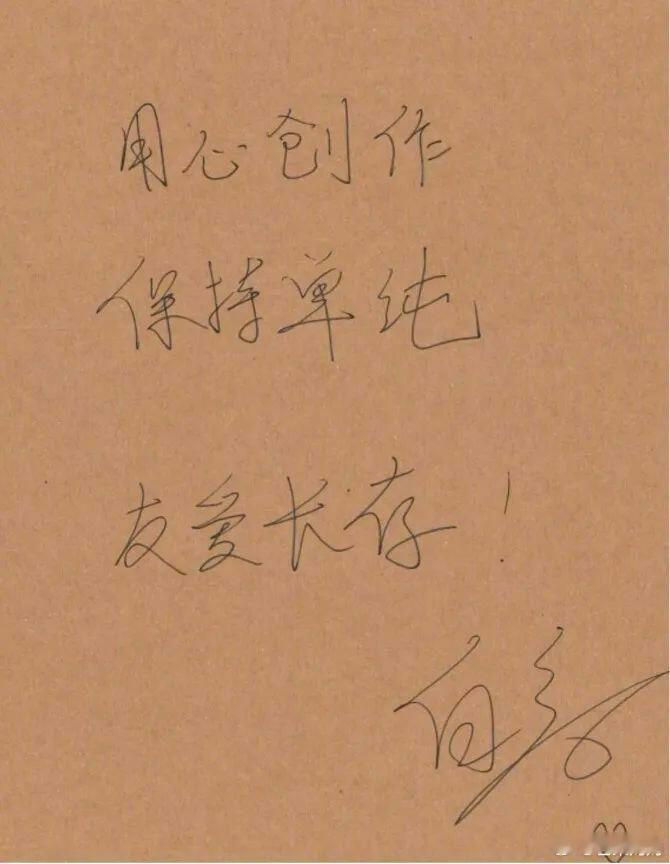 用心创作
保持单纯
友爱长存!